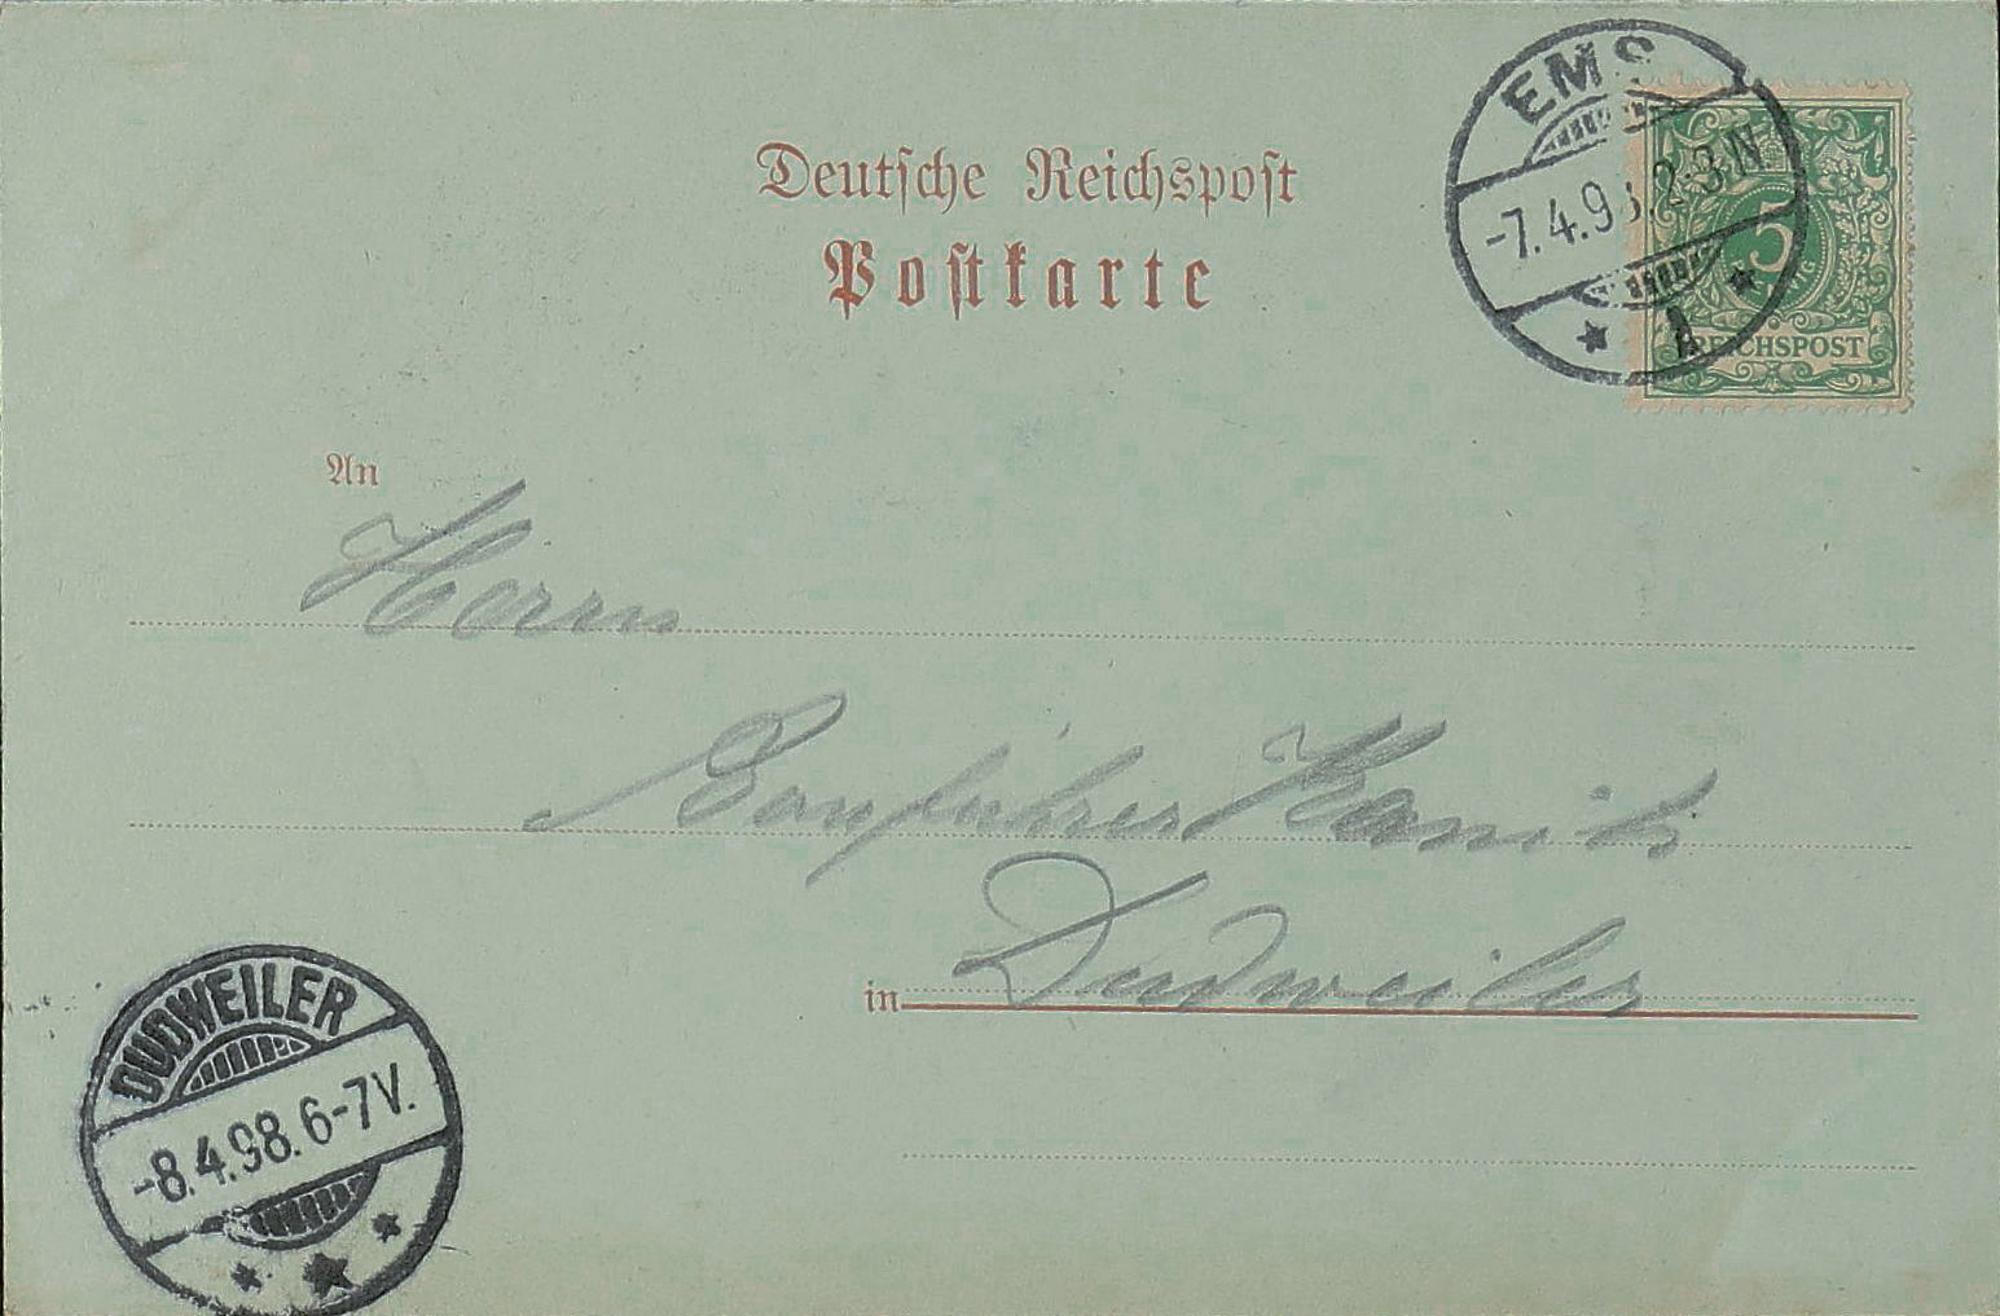 Deutsche Reichspost
Postkarte
EMS
-7.4.98. 2-3.N
5
REICHSPOST
An
Herrn
Bauführer Kanitz
in Dudweiler
DUDWEILER
-8.4.98. 6-7V.